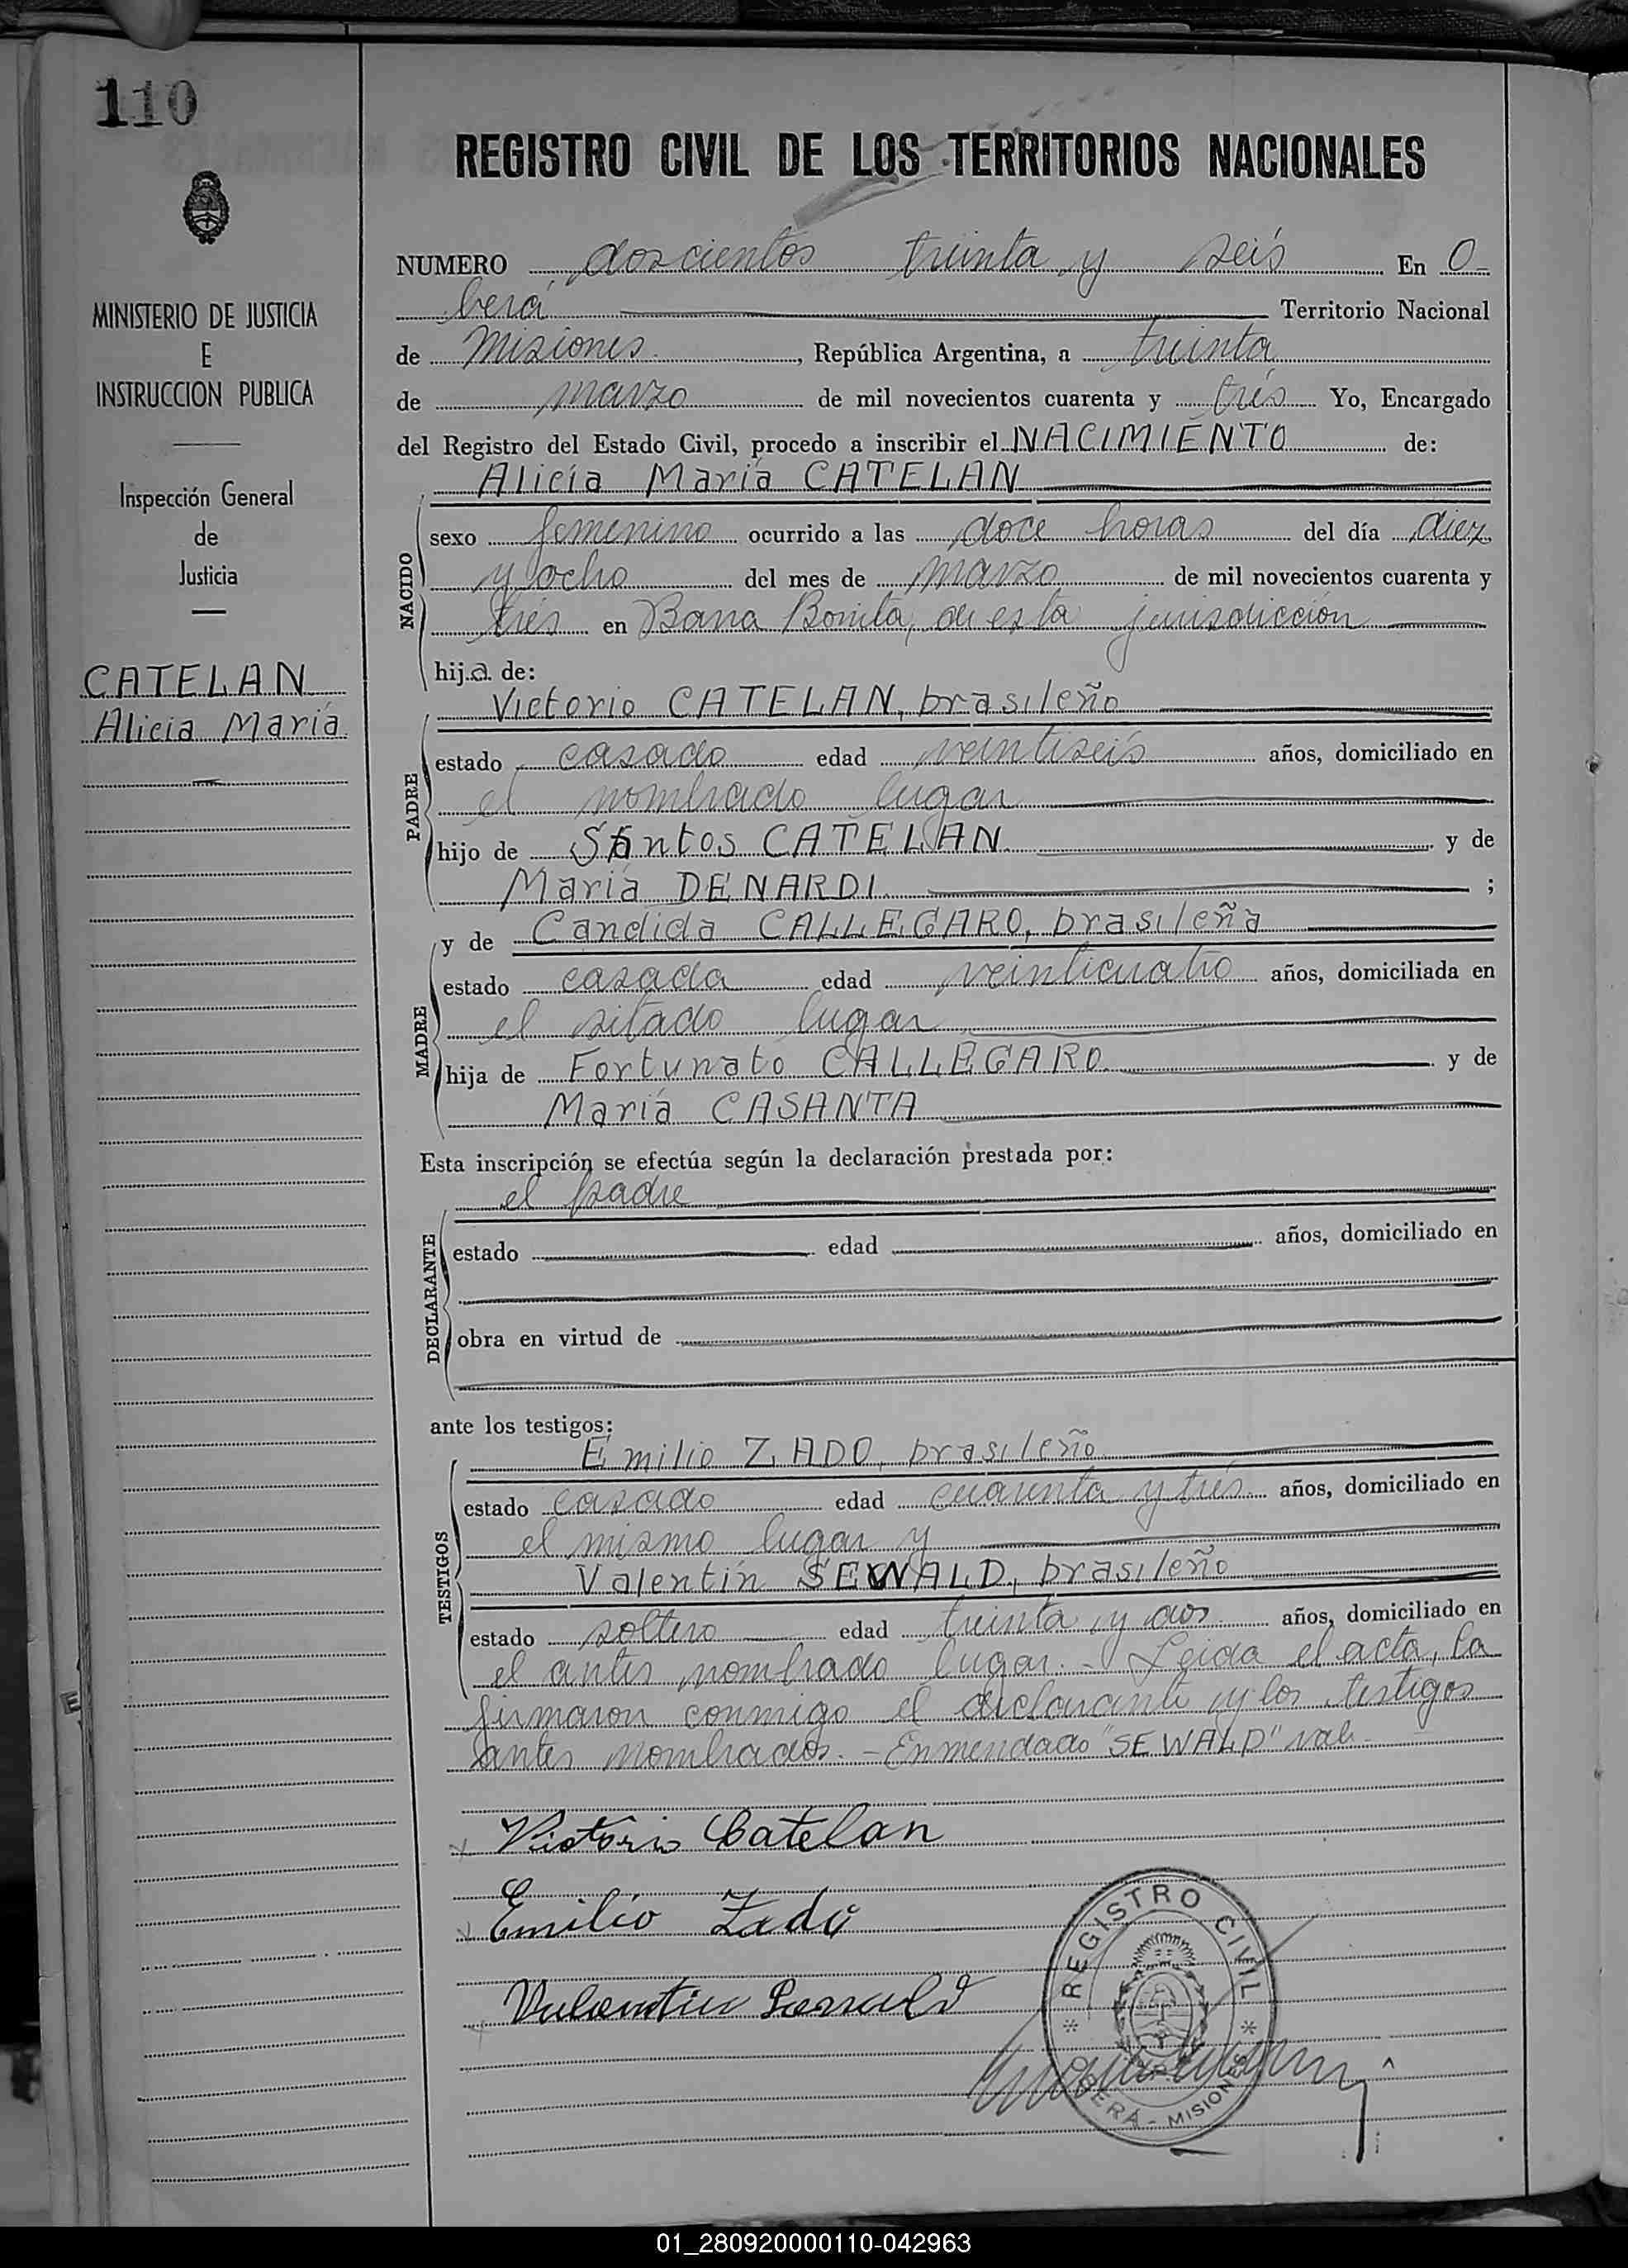 110
REGISTRO CIVIL DE LOS TERRITORIOS NACIONALES
MINISTERIO DE JUSTICIA
E
INSTRUCCION PUBLICA
Inspección General
de
Justicia
CATELAN
Alicia María
NUMERO doscientos treinta y seis En O-
berá Territorio Nacional
de Misiones, República Argentina, a treinta
de marzo de mil novecientos cuarenta y trés Yo, Encargado
del Registro del Estado Civil, procedo a inscribir el NACIMIENTO de:
Alicia María CATELAN
NACIDO
sexo femenino ocurrido a las doce horas del día diez
y ocho del mes de marzo de mil novecientos cuarenta y
trés en Barra Bonita, de esta jurisdicción
hija de:
PADRE
Victorio CATELAN, brasileño
estado casado edad veintiseis años, domiciliado en
el nombrado lugar
hijo de Santos CATELAN y de
María DENARDI ;
MADRE
y de Candida CALLEGARO, brasileña
estado casada edad veinticuatro años, domiciliada en
el sitado lugar
hija de Fortunato CALLEGARO y de
María CASANTA
Esta inscripción se efectúa según la declaración prestada por:
el padre
DECLARANTE
estado edad años, domiciliado en
obra en virtud de
ante los testigos:
TESTIGOS
Emilio ZADO, brasileño
estado casado edad cuarenta y trés años, domiciliado en
el mismo lugar y
Valentín SEWALD, brasileño
estado soltero edad treinta y dos años, domiciliado en
el antes nombrado lugar.- Leida el acta, la
firmaron conmigo el declarante y los testigos
antes nombrados.- Enmendado "SEWALD" vale
Victório Catelan
Emilio Zado
Valentin Sewald
REGISTRO CIVIL
OBERÁ - MISIONES
01_280920000110-042963